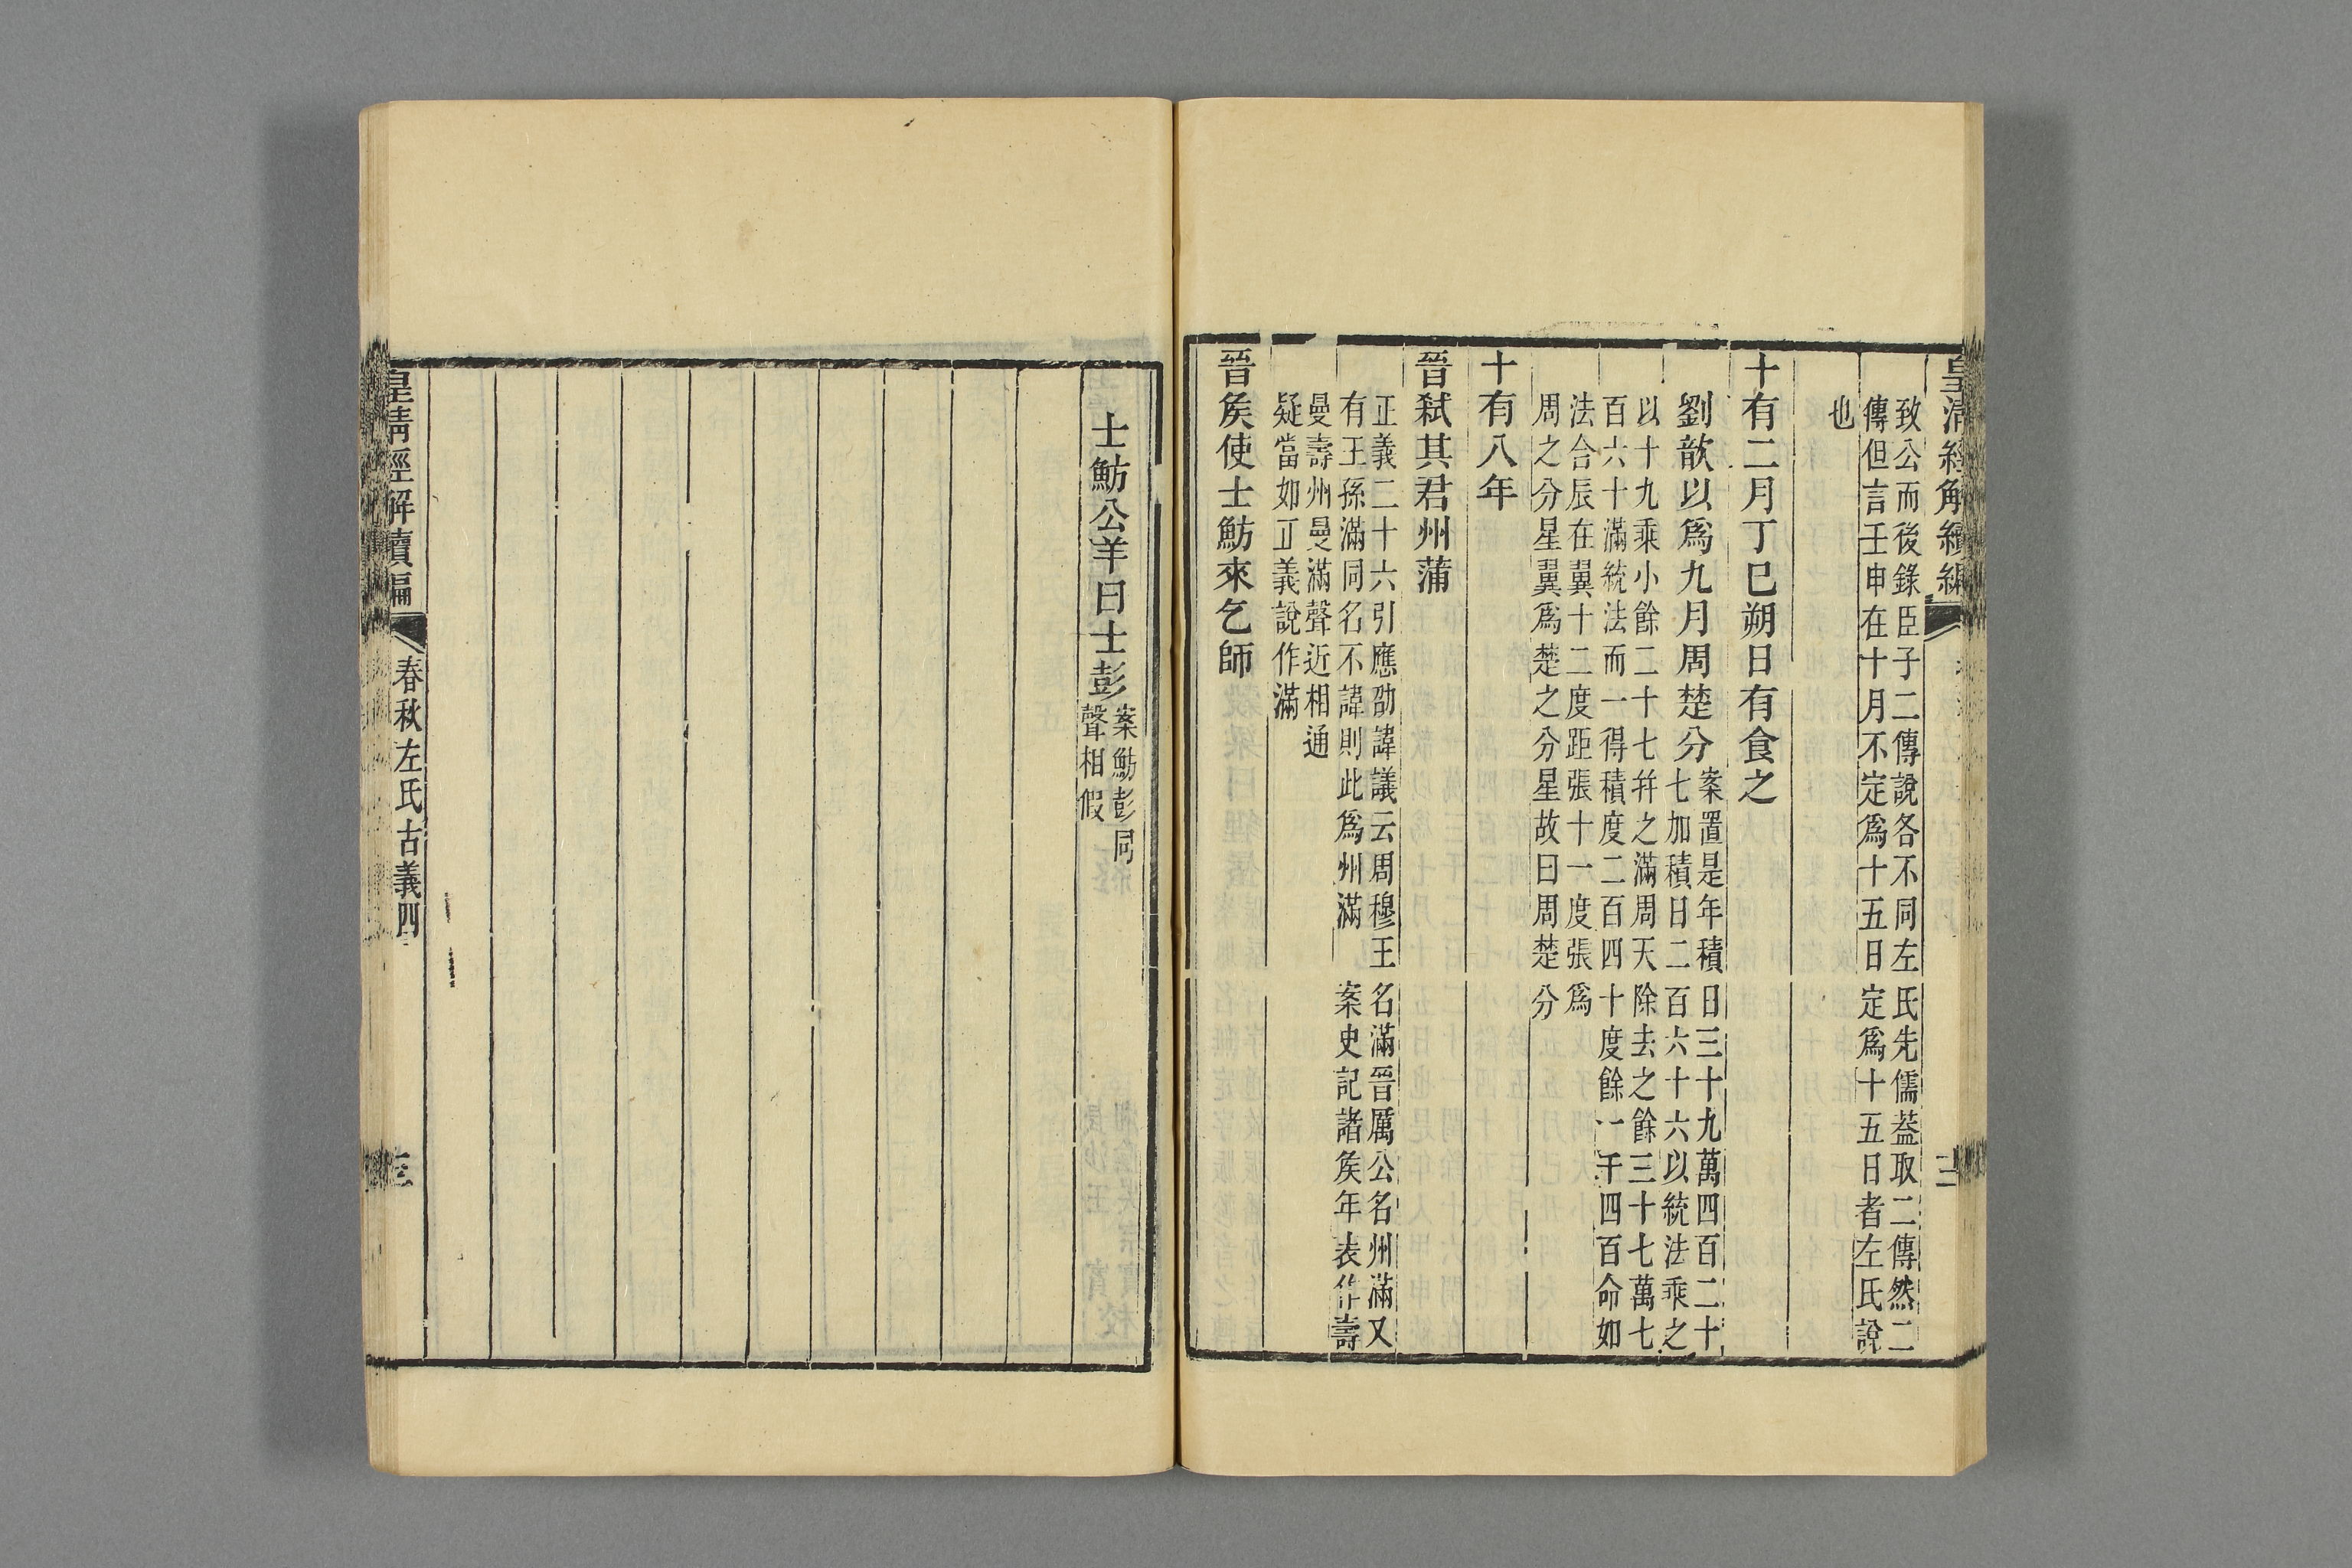 皇清經解續編
致公而後錄臣子二傳說各不同左氏先儒葢取二傳然二
傳但言壬申在十月不定爲十五日定爲十五日者左氏說
也
十有二月丁巳朔日有食之
劉歆以爲九月周楚分
案置是年積日三十九萬四百二十
七加積日二百六十六以統法乘之
以十九乘小餘二十七幷之滿周天除去之餘三十七萬七
百六十滿統法而一得積度二百四十度餘一千四百命如
法合辰在翼十二度距張十一度張爲
周之分星翼爲楚之分星故曰周楚分
十有八年
晉弑其君州蒲
正義二十六引應劭諱議云周穆王名滿晉厲公名州滿又
有王孫滿同名不諱則此爲州滿 案史記諸矦年表作壽
曼壽州曼滿聲近相通
疑當如正義說作滿
晉矦使士魴來乞師
士魴公羊曰士彭
案魴彭同
聲相假
皇清經解續編
春秋左氏古義四